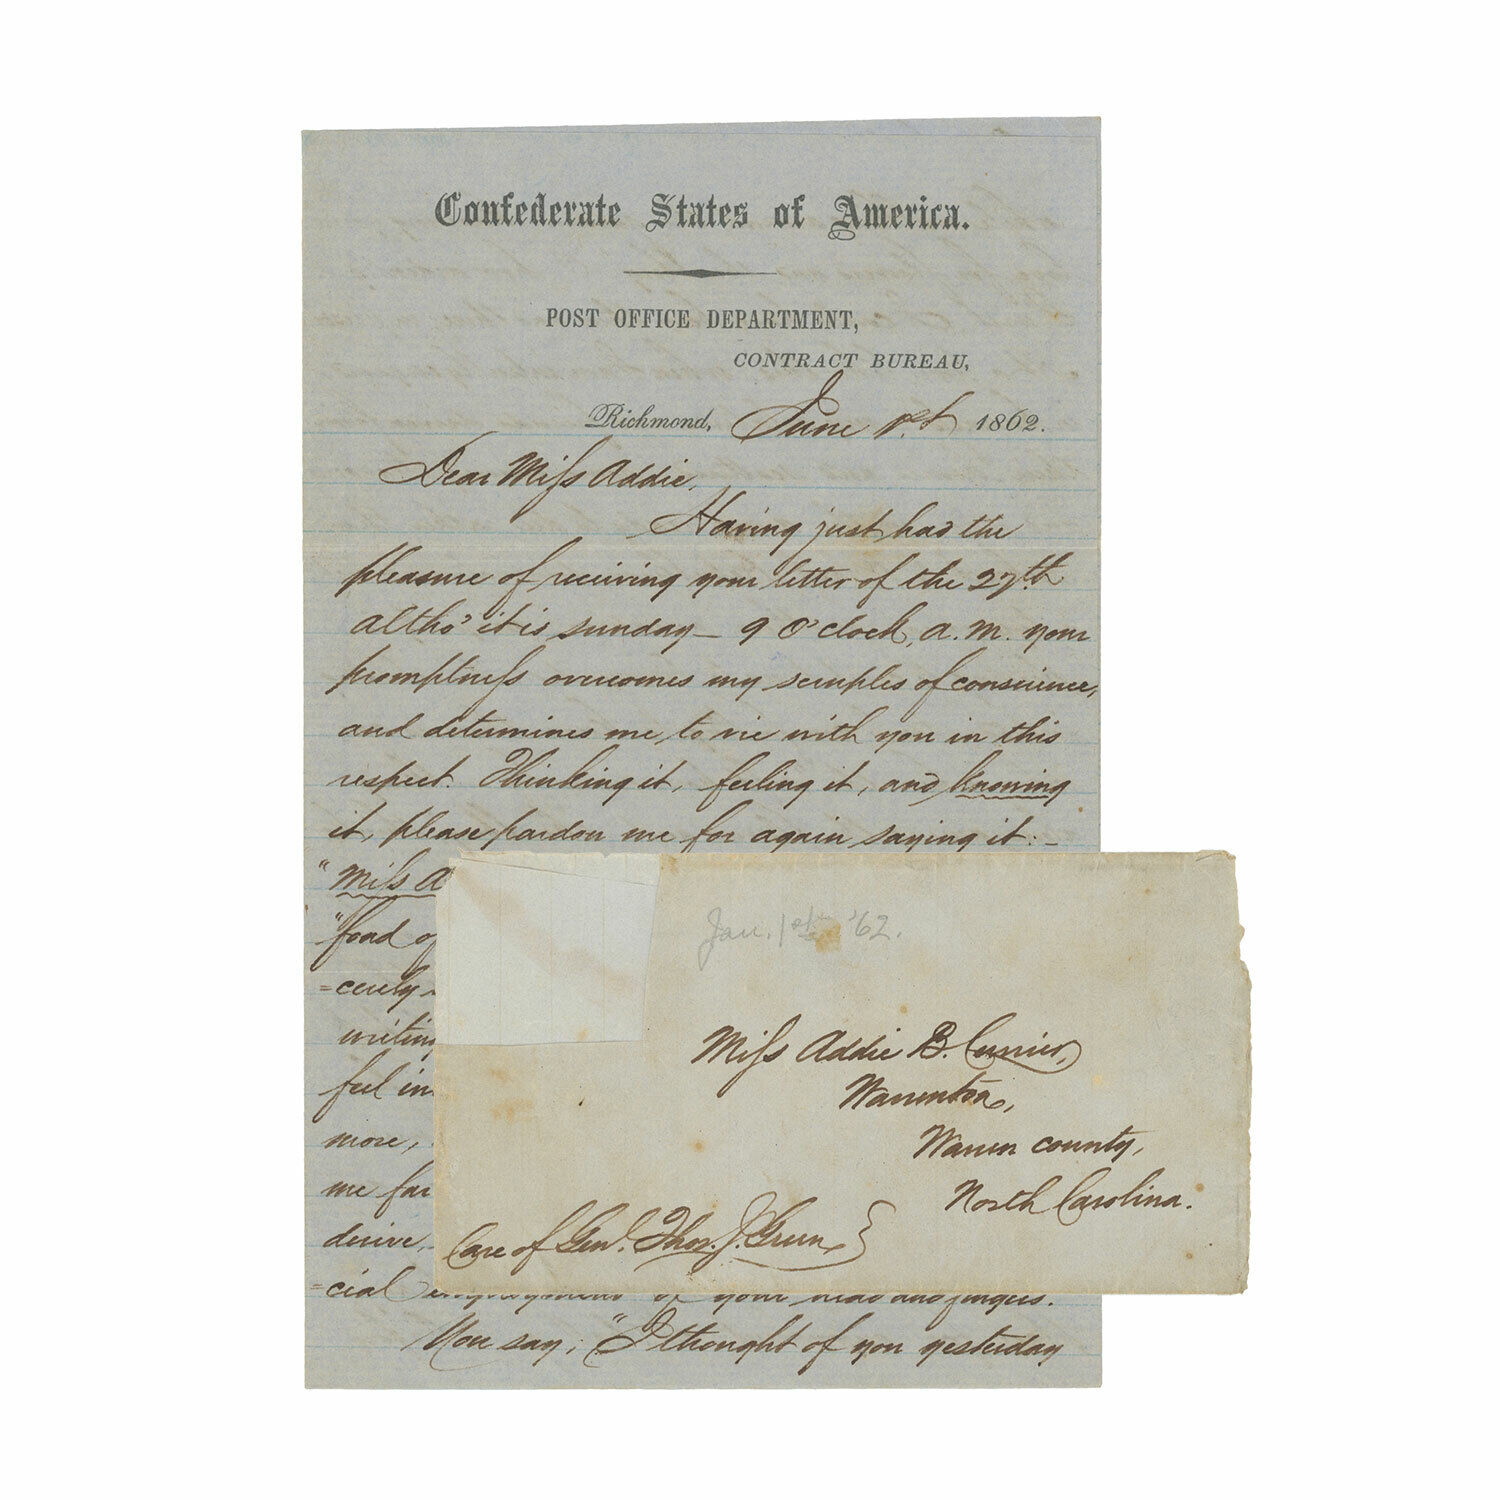 Confederate States of America.
POST OFFICE DEPARTMENT,
CONTRACT BUREAU,
Richmond, June 1st 1862.
Dear Miss Addie,
Having just had the
pleasure of receiving your letter of the 27th
altho' it is sunday — 9 O'clock, a. m. your
promptness overcomes my scruples of conscience,
and determines me, to vie with you in this
respect. Thinking it, feeling it, and knowing
it, please pardon me for again saying it: —
"Miss A
"fond of
=cerely
writing
feel in
more,
me far
derive,
=cial employment of your head and fingers.
You say; "I thought of you yesterday
Jan. 1st '62.
Miss Addie B. Currier,
Warrenton,
Warren county,
North Carolina.
Care of Genl. Thos. J. Green